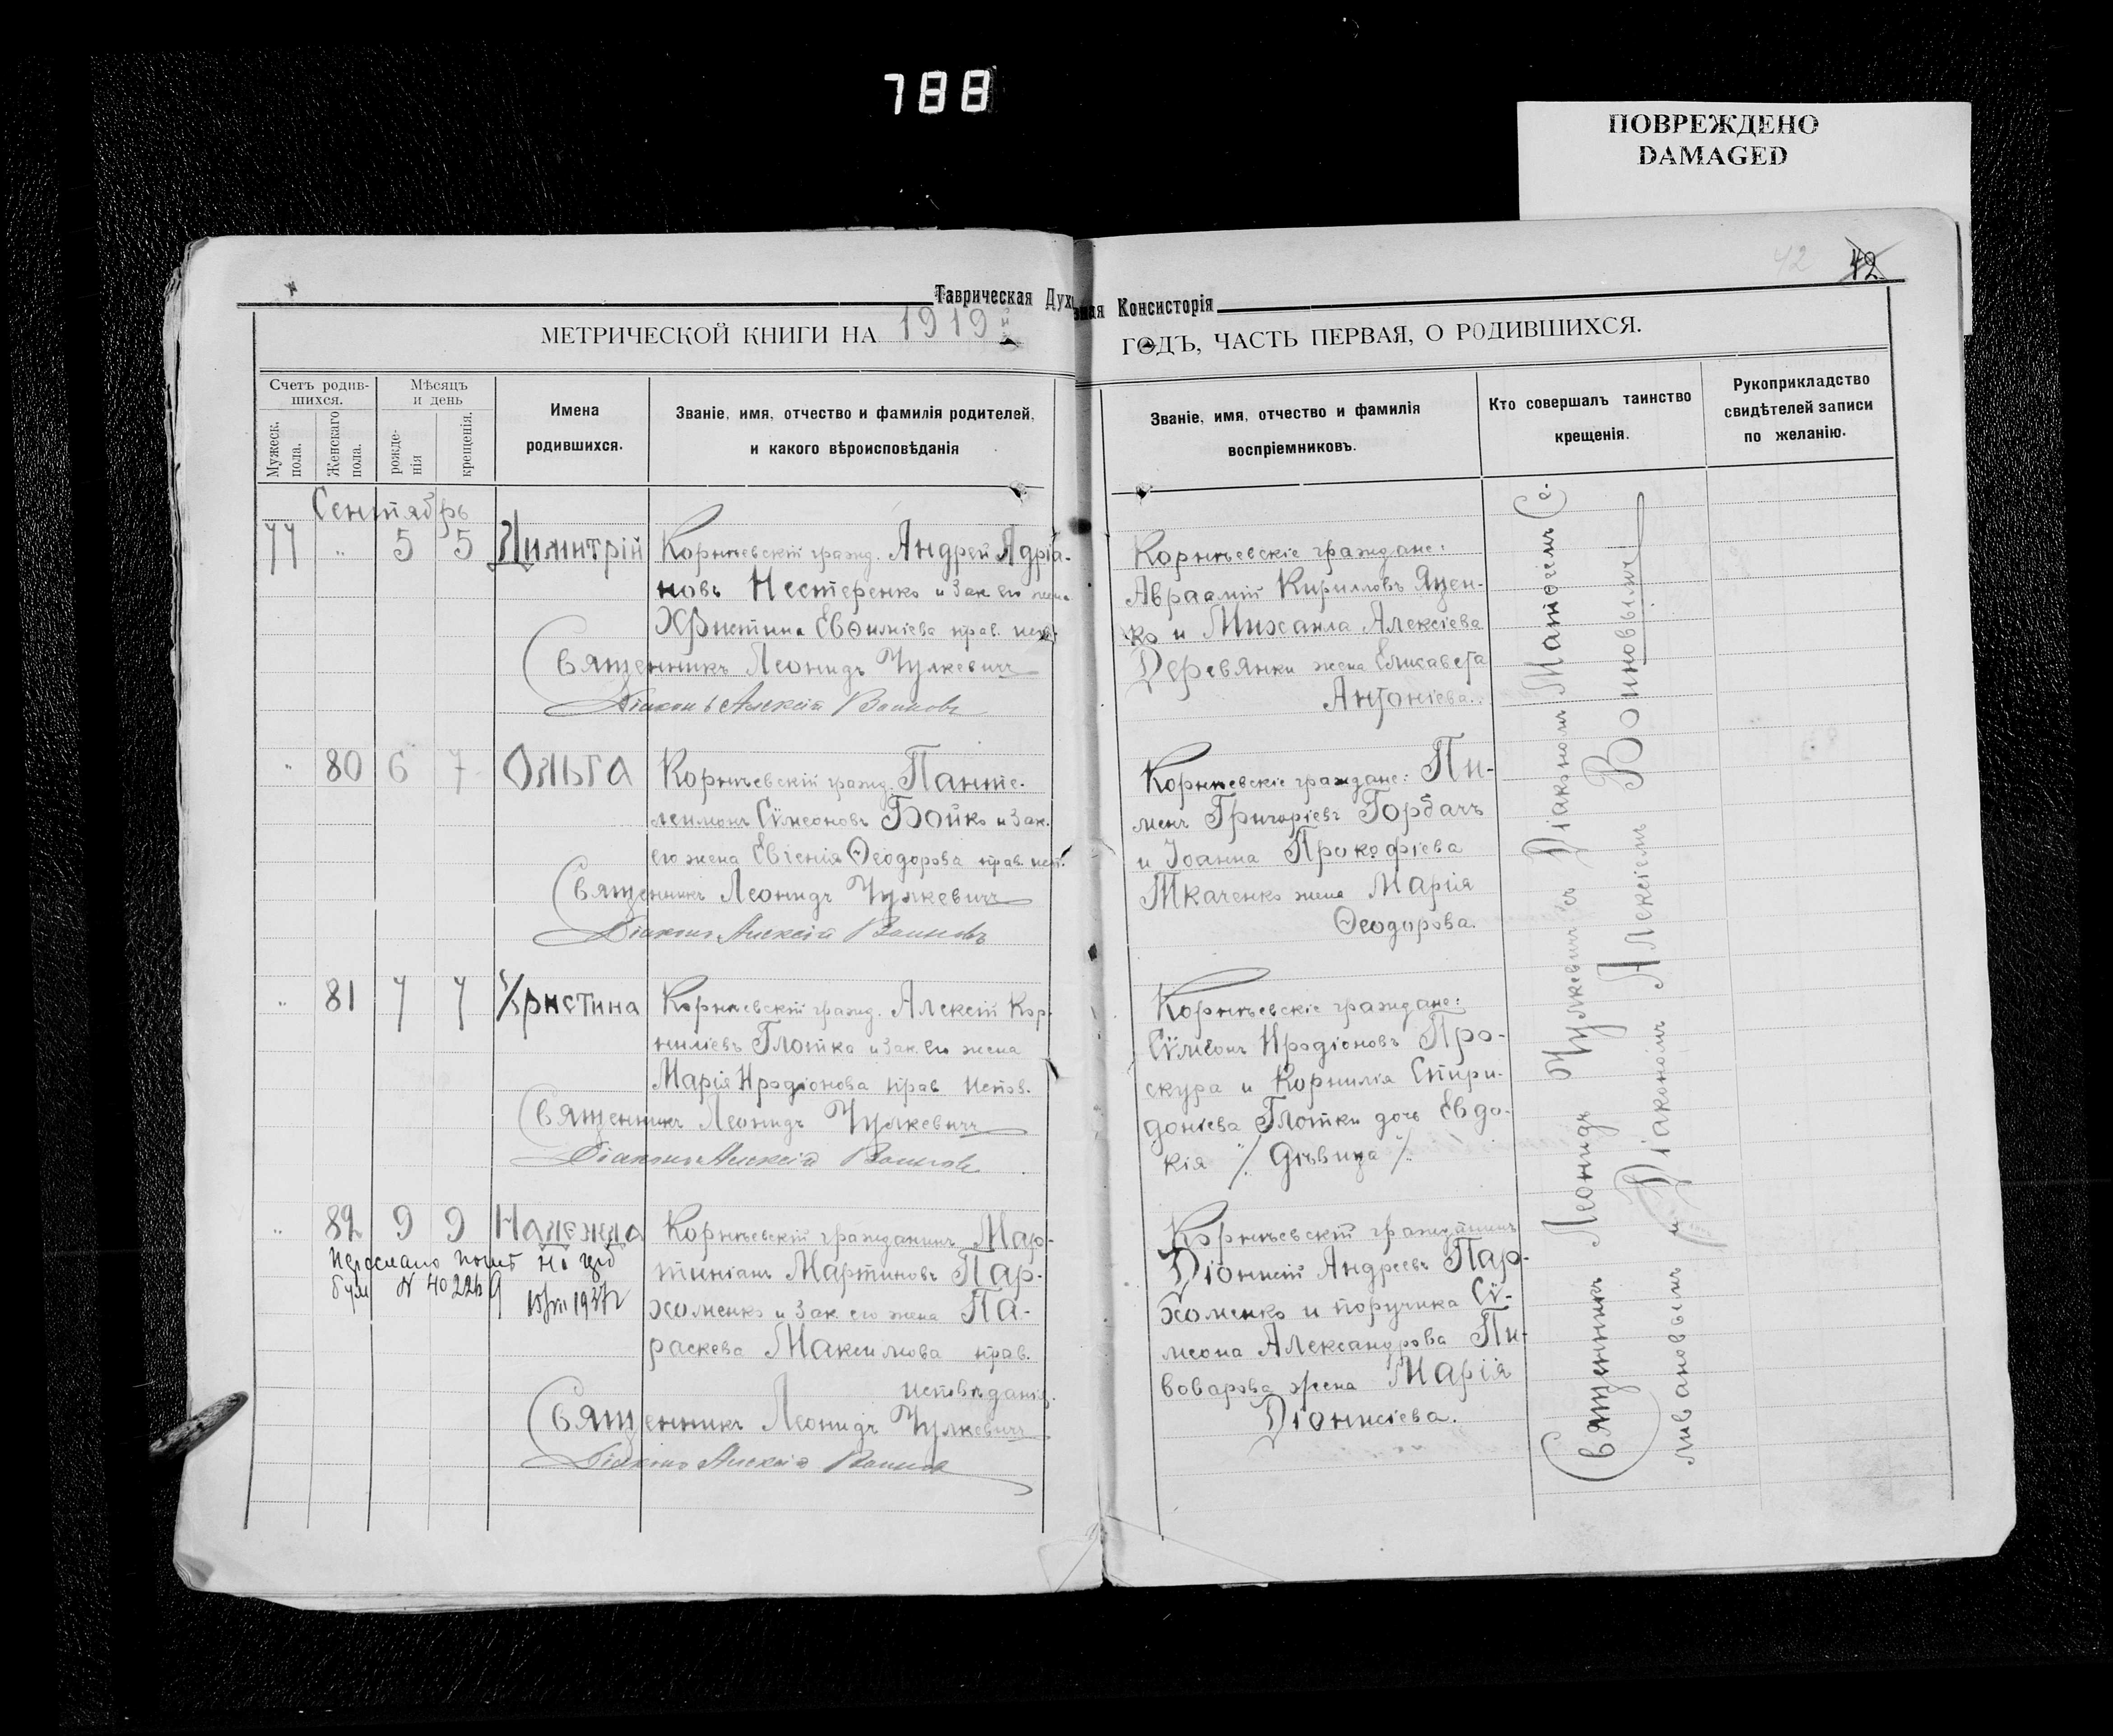 788
ПОВРЕЖДЕНО
DAMAGED
42
42
Таврическая Духовная Консисторія
МЕТРИЧЕСКОЙ КНИГИ НА 1919й ГОДЪ, ЧАСТЬ ПЕРВАЯ, О РОДИВШИХСЯ.
Счетъ родив-
шихся.
Мужеск.
пола.
Женскаго
пола.
Мѣсяцъ
и день
рожде-
нія
крещенія.
Имена
родившихся.
Званіе, имя, отчество и фамилія родителей,
и какого вѣроисповѣданія
Званіе, имя, отчество и фамилія
воспріемниковъ.
Кто совершалъ таинство
крещенія.
Рукоприкладство
свидѣтелей записи
по желанію.
Сентябрь
77 " 5 5 Димитрій
Корнѣевскій гражд. Андрей Адріа-
новъ Нестеренко и зак. его жена
Христина Евѳиміева прав. испов.
Священникъ Леонидъ Чулкевичъ
Діаконъ Алексій Воиновъ
Корнѣевскіе граждане:
Авраамій Кирилловъ Яцен-
ко и Михаила Алексіева
Деревянки жена Елисавета
Антоніева.
" 80 6 7 Ольга
Корнѣевскій гражд. Панте-
леимонъ Сѵмеоновъ Бойко и зак.
его жена Евгенія Ѳеодорова прав. исп.
Священникъ Леонидъ Чулкевичъ
Діаконъ Алексій Воиновъ
Корнѣевскіе граждане: Пи-
менъ Григоріевъ Горбачъ
и Іоанна Прокофіева
Ткаченко жена Марія
Ѳеодорова.
" 81 7 7 Христина
Корнѣевскій гражд. Алексій Кор-
ниліевъ Глотка и зак. его жена
Марія Иродіонова прав. испов.
Священникъ Леонидъ Чулкевичъ
Діаконъ Алексій Воиновъ
Корнѣевскіе граждане:
Сѵмеонъ Иродіоновъ Про-
скура и Корнилія Спири-
доніева Глотки дочь Евдо-
кія /. дѣвица /.
" 82 9 9 Надежда
Корнѣевскій гражданинъ Мар-
тиніанъ Мартиновъ Пар-
хоменко и зак. его жена Па-
раскева Максимова прав.
исповѣданія.
Священникъ Леонидъ Чулкевичъ
Діаконъ Алексій Воиновъ
N 402269
1937г
Корнѣевскій гражданинъ
Діонисій Андреевъ Пар-
хоменко и поручика Сѵ-
меона Александрова Пи-
воварова жена Марія
Діонисіева.
Священникъ Леонидъ Чулкевичъ съ Діакономъ Матѳіемъ Се-
ливановымъ и Діакономъ Алексіемъ Воиновымъ